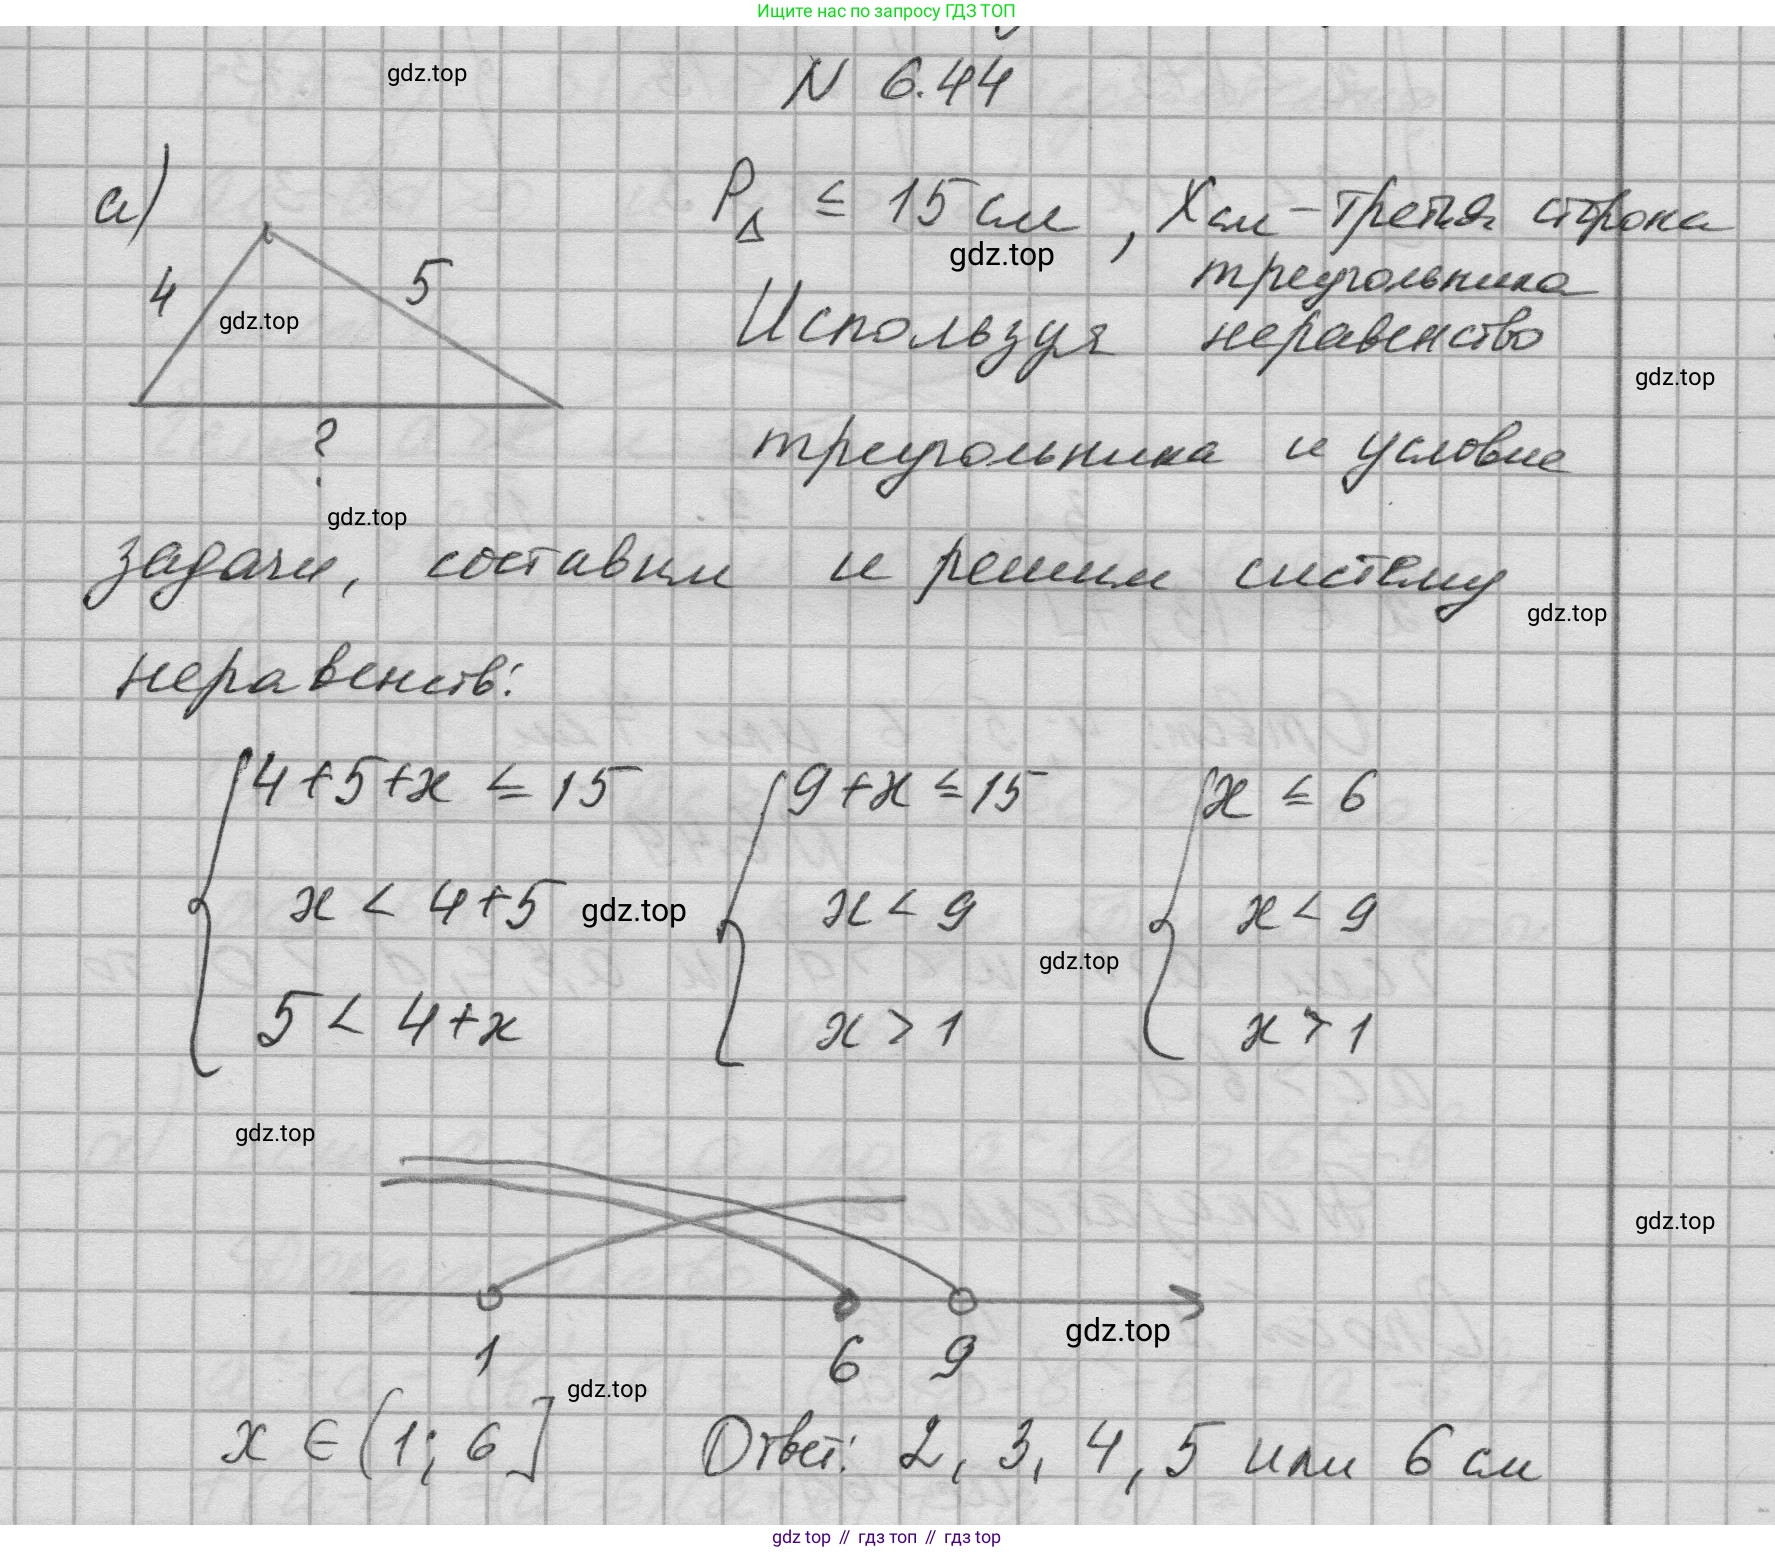 Ищите нас по запросу ГДЗ ТОП
N 6.44
gdz.top
а)
P△ ≤ 15 см, X см – третья сторона
треугольника
4
5
gdz.top
gdz.top
Используя неравенство
gdz.top
?
треугольника и условие
gdz.top
задачи, составим и решим систему
gdz.top
неравенств:
4+5+x ≤ 15 9+x ≤ 15 x ≤ 6
x < 4+5 gdz.top x < 9 x < 9
gdz.top
5 < 4+x x > 1 x > 1
gdz.top
gdz.top
1 6 9 gdz.top
gdz.top
x ∈ (1; 6] Ответ: 2, 3, 4, 5 или 6 см
gdz top // гдз топ // гдз top